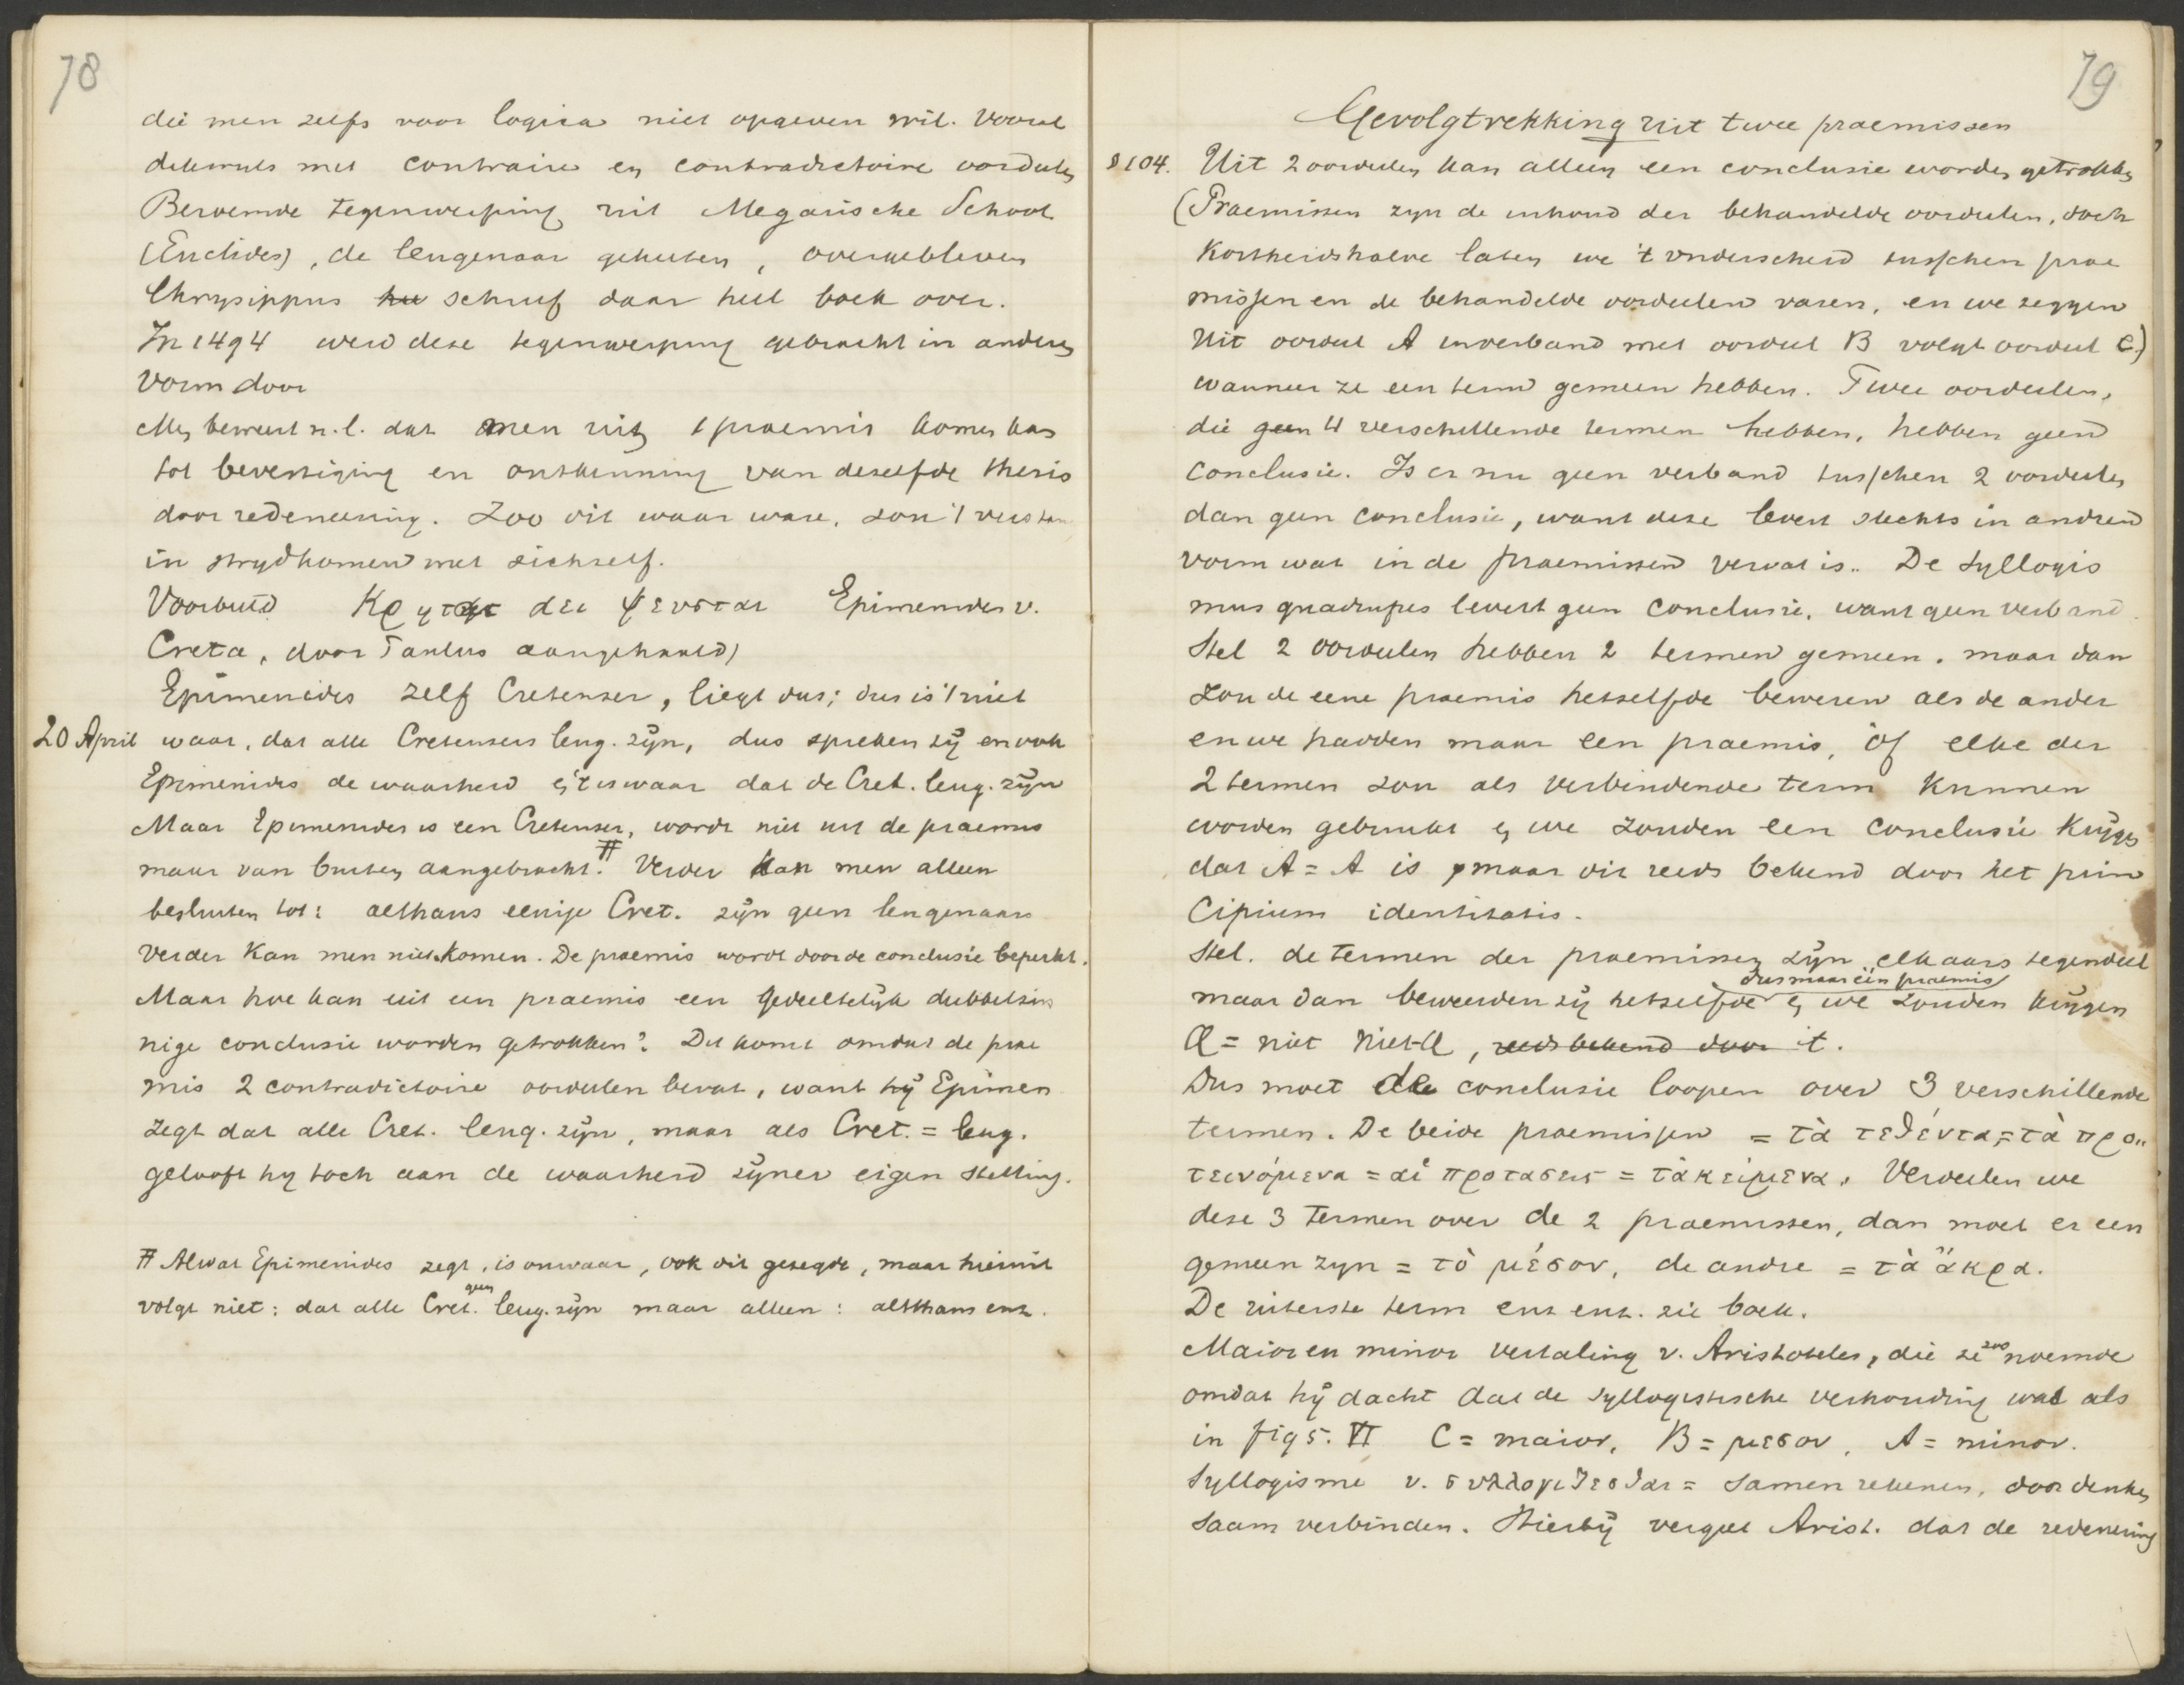 78
die men zelfs voor logica niet opgeven wil. Vooral
dilemma's met contraire en contradictoire oordeelen
Beroemde tegenwerping uit Megarische School
(Euclides), de leugenaar geheeten, overgebleven
Chrysippus schreef daar heel boek over.
In 1494 werd deze tegenwerping gebracht in anderen
vorm door
Men beweert n.l. dat men uit 1 praemis komen kan
tot bevestiging en ontkenning van dezelfde thesis
door redeneering. Zoo dit waar ware, zou 't verstand
in strydkomen met zichzelf.
Voorbeeld Κρητες αει ψευσται Epimenides v.
Creta, door Paulus aangehaald)
Epimenides zelf Cretenser, liegt dus; dus is 't niet
20 April waar, dat alle Cretensers leug. zijn, dus spreken zij en ook
Epimenides de waarheid en 't is waar dat de Cret. leug. zijn
Maar Epimenides is een Cretenser, wordt niet uit de praemis
maar van buiten aangebracht. # Verder kan men alleen
besluiten tot: althans eenige Cret. zijn geen leugenaars
Verder kan men niet komen. De praemis wordt door de conclusie beperkt.
Maar hoe kan uit een praemis een gedeeltelijk dubbelzin
nige conclusie worden getrokken? Dit komt omdat de prae
mis 2 contradictoire oordeelen bevat, want hij Epimen
zegt dat alle Cret. leug. zijn, maar als Cret. = leug.
gelooft hy toch aan de waarheid zijner eigen stelling.
# Alwat Epimenides zegt, is onwaar, ook dit gezegde, maar hieruit
volgt niet; dat alle Cret. geen leug. zijn maar alleen: althans enz.
79
Gevolgtrekking uit twee praemissen
§104. Uit 2 oordeelen kan alleen een conclusie worden getrokken
(Praemissen zyn de inhoud der behandelde oordeelen, doch
kortheidshalve laten we 't onderscheid tusschen prae
missen en de behandelde oordeelen varen, en we zeggen
Uit oordeel A inverband met oordeel B volgt oordeel C.)
wanneer ze een term gemeen hebben. Twee oordeelen,
die geen 4 verschillende termen hebben, hebben geen
conclusie. Is er nu geen verband tusschen 2 oordeelen
dan geen conclusie, want deze levert slechts in andren
vorm wat in de praemissen vervat is.. De Syllogis
mus quadrupes levert geen conclusie, want geen verband.
Stel 2 oordeelen hebben 2 termen gemeen. maar dan
zou de eene praemis hetzelfde beweren als de ander
en we hadden maar een praemis, òf elke der
2 termen zou als verbindende term kunnen
worden gebruikt en we zouden een conclusie krijgen
dat A = A is maar dit reeds bekend door het prin
cipium identitatis.
Stel. de termen der praemissen zijn elkaars tegendeel
maar dan beweerden zij hetzelfde dus maar één praemis en we zouden krijgen
A = niet Niet-A, reeds bekend door 't.
Dus moet de conclusie loopen over 3 verschillende
termen. De beide praemissen = τὰ τεθέντα = τὰ προ..
τεινόμενα = αἱ προτασεις = τὰ κείμενα. Verdeelen we
deze 3 termen over de 2 praemissen, dan moet er een
gemeen zyn = τὸ μέσον, de andre = τὰ ἄκρα.
De uiterste term enz enz. zie boek.
Maior en minor vertaling v. Aristoteles, die ze zoo noemde
omdat hij dacht dat de syllogistische verhouding was als
in fig 5. VI C = maior, B = μεσον, A = minor.
Syllogisme v. συλλογιζεσθαι = samen rekenen, door denken
saam verbinden. Hierbij vergeet Arist. dat de redeneering